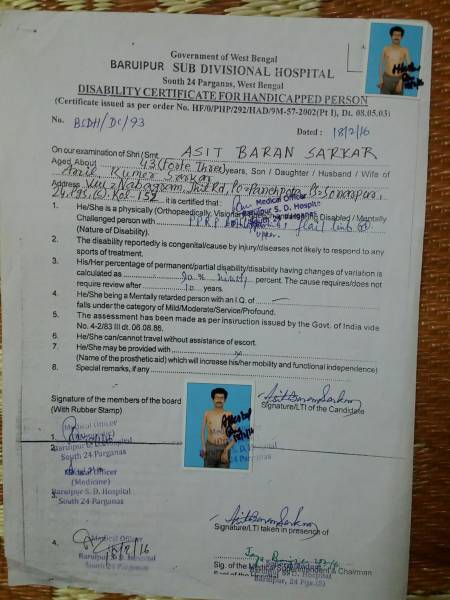 Government of West Bengal
BARUIPUR SUB DIVISIONAL HOSPITAL
South 24 Parganas, West Bengal
DISABILITY CERTIFICATE FOR HANDICAPPED PERSON
(Certificate issued as per order No. HF/0/PHP/292/HAD/9M-57-2002(Pt I), Dt. 08.05.03)
No. BSDH/DC/93
Dated : 18/2/16
On our examination of Shri / Smt. ASIT BARAN SARKAR
Aged About 43 (Forte Three) years, Son / Daughter / Husband / Wife of
Anil Kumar Sarkar
Address Vill- Nabagram, PO= Panchpota, PS= Sonarpur,
24 Pgs, (S), Kol-152 it is certified that :
Medical Officer
Baruipur S. D. Hospital
South 24 Parganas
1. He/She is a physically (Orthopaedically, Disabled / Mentally
Challenged person with PPRP flail limb
upper.
(Nature of Disability).
2. The disability reportedly is congenital/cause by injury/diseases not likely to respond to any
sports of treatment.
3. His/Her percentage of permanent/partial disability/disability having changes of variation is
calculated as 90% ninety percent. The cause requires/does not
require review after 10 years.
4. He/She being a Mentally retarded person with an I.Q. of
falls under the category of Mild/Moderate/Service/Profound.
5. The assessment has been made as per insiruction issued by the Govt. of India vide
No. 4-2/83 III dt. 06.08.86.
6. He/She can/cannot travel without assistance of escort.
7. He/She may be provided with x
(Name of the prosthetic aid) which will increase his/her mobility and functional independence)
8. Special remarks, if any
Signature of the members of the board
(With Rubber Stamp)
Asit Baran Sarkar
Signature/LTI of the Candidate
1.
Medical Officer
Baruipur S. D. Hospital
South 24 Parganas
2.
Medical Officer
(Medicine)
Baruipur S. D. Hospital
South 24 Parganas
3.
Asit Baran Sarkar
Signature/LTI taken in presence of
4.
Medical Officer
Baruipur S. D. Hospital
South 24 Parganas
Sig. of the Medical Superintendent & Chairman
Baruipur S. D. Hospital
Baruipur, 24 Pgs.(S)